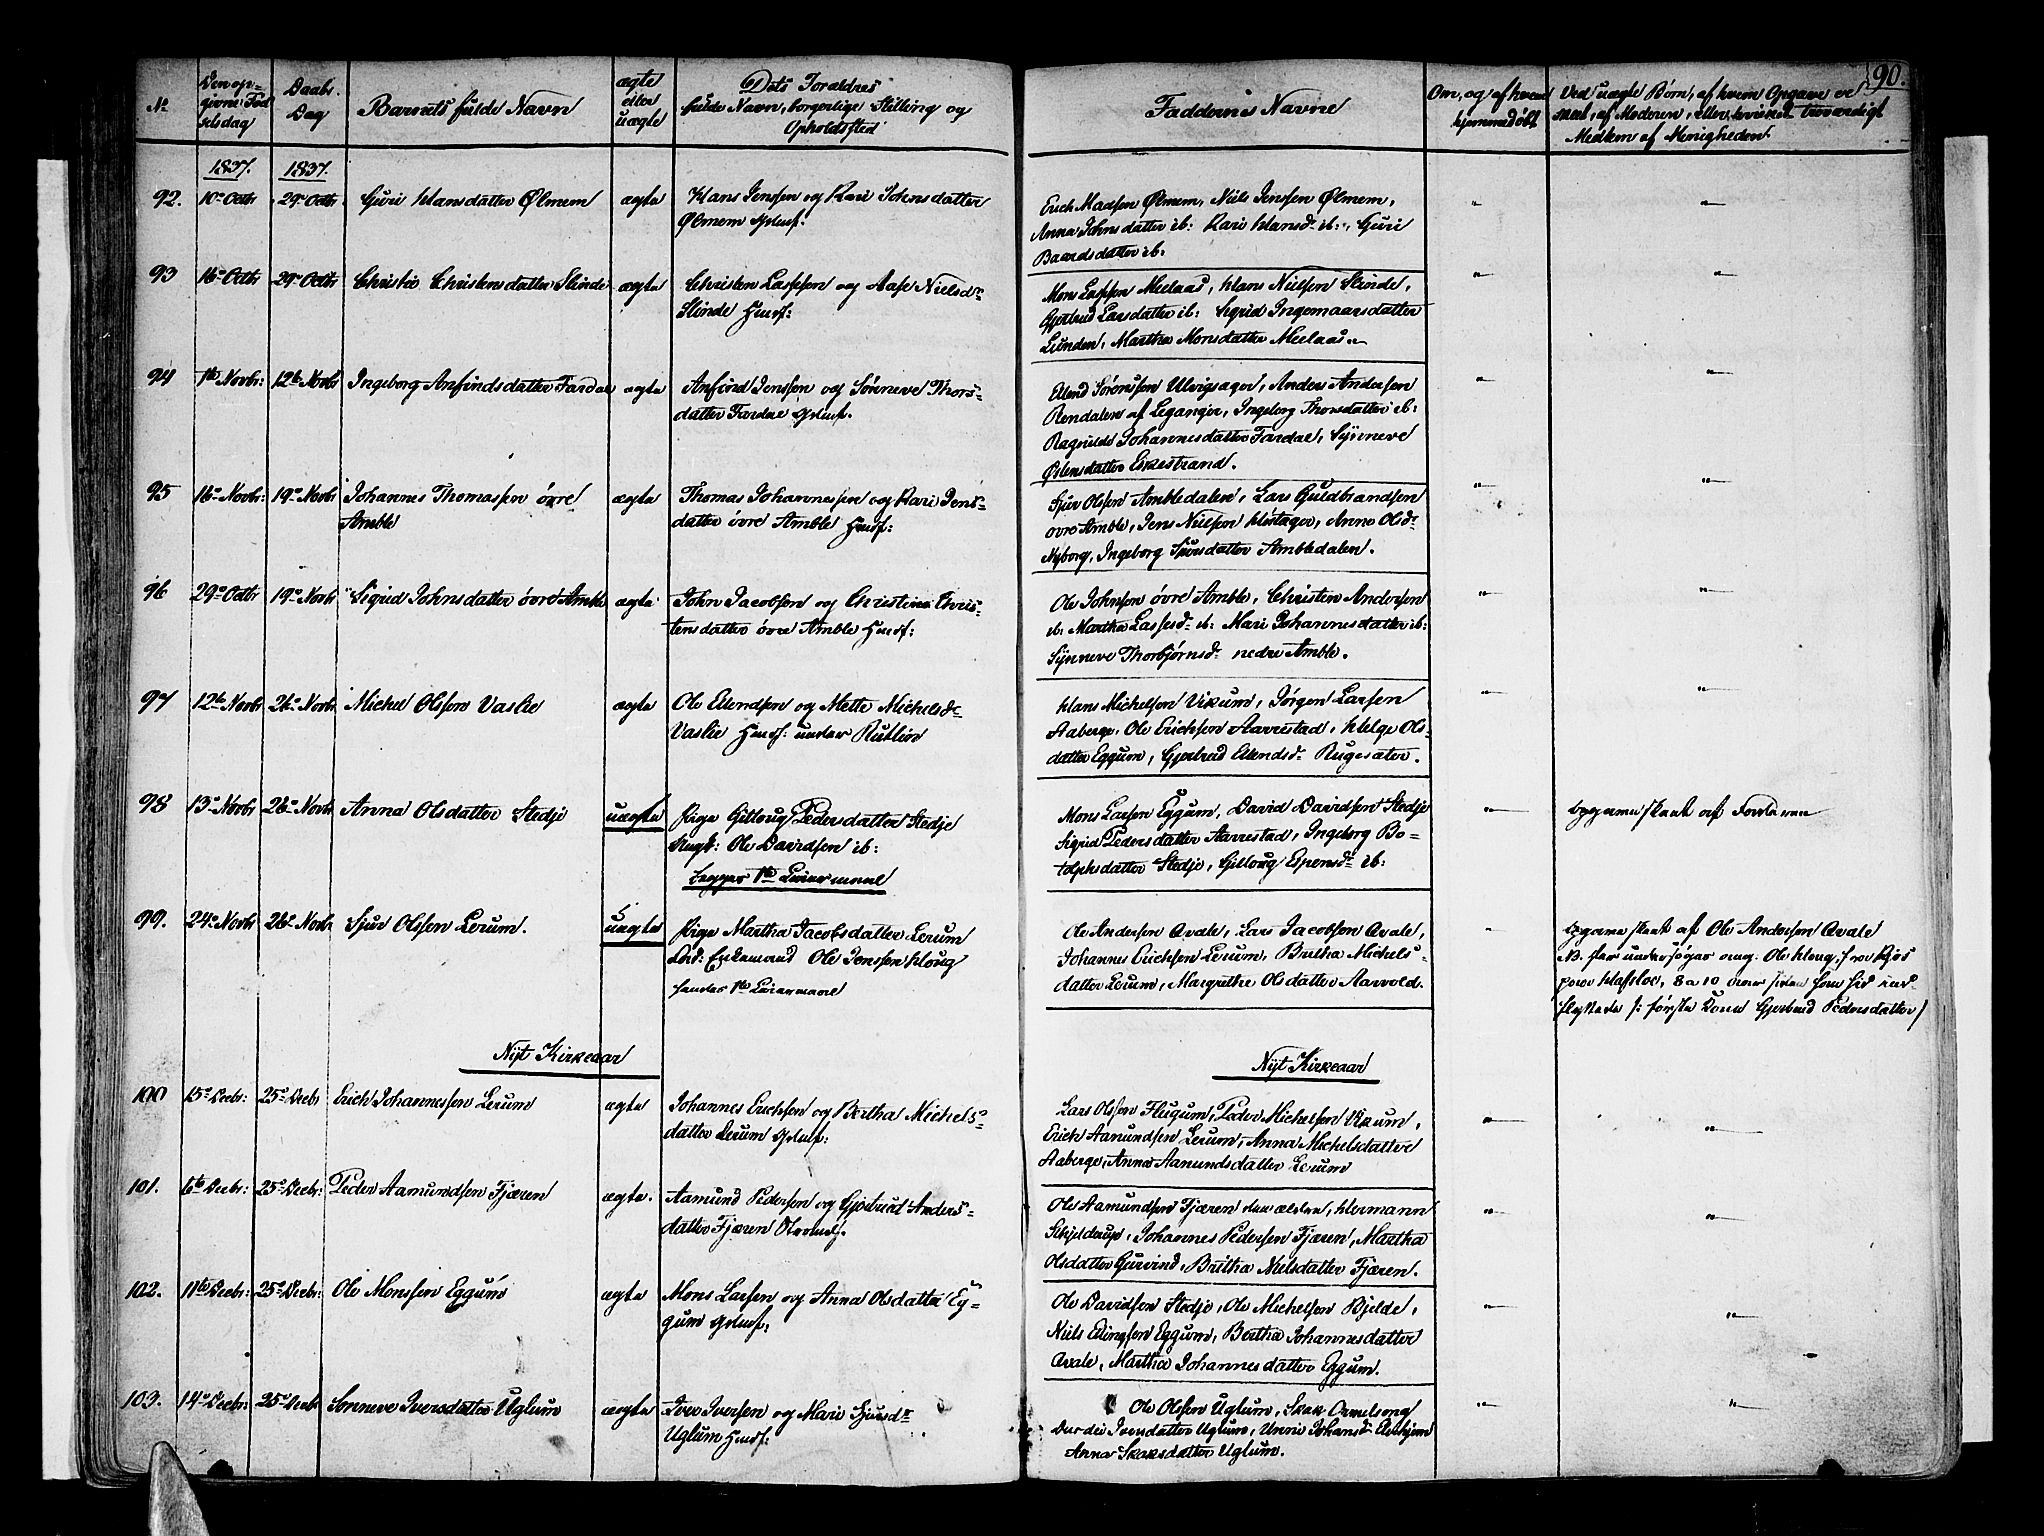 90.
No
Den opgivne Fødselsdag
Daabs Dag
Barnets fulde Navn
ægte eller uægte
Dets Forældres fulde Navn, borgerlige Stilling og Opholdsted
Faddernes Navne
Om, og af hvem hjemmedøbt
Ved uægte Børn, af hvem Opgave er
skeet, af Moderen, eller troværdigt
Medlem af Menigheden.
1837. 1837.
92. 10de Octbr 29de Octbr Guri Hansdatter Ølmem ægte Hans Jenssen og Kari Johnsdatter
Ølmem Gdmf:
Erich Madsen Ølmem, Niels Jenssen Ølmem,
Anna Johnsdatter ib: Kari Hansd: ib:, Guri
Baardsdatter ib:
93 16de Octbr 29de Octbr Christie Christensdatter Slinde ægte Christen Lassesen og Aase Nielsdr
Slinde Husf:
Mons Lassesen Meelaas, Hans Nielsen Slinde,
Gjertrud Larsdatter ib: Sigrid Ingemaarsdatter
Lunden, Martha Monsdatter Meelaas
94 1te Novbr: 12te Novbr Ingeborg Anfindsdatter Fardal ægte Anfind Jenssen og Sønneve Thors-
datter Fardal Gdmf.
Elend Sørenssen Ulvigsager, Anders Andersen
Rendalen af Leganger, Ingeborg Thorsdatter ib:
Ragnilds Johannesdatter Fardal, Synneve
Ølensdatter Eskestrand.
95 16de Novbr: 19de Novbr Johannes Thomassen øvre
Amble ægte Thomas Johannessen og Kari Jens-
datter øvre Amble Husf:
Sjur Olssen Ambledalen, Lars Guldbrandsen
øvre Amble, Jens Nielsen Husager, Anna Olsdr
Nyborg, Ingeborg Sjursdatter Ambledalen.
96 29de Octbr 19de Novbr Sigrid Johnsdatter øvre Amble ægte John Jacobsen og Christine Chris-
tensdatter øvre Amble Husf:
Ole Johnsen øvre Amble, Christen Andersen
ib: Martha Lassesdr ib: Mari Johannesdatter ib:
Synneve Thorbjørnsdr nedre Amble.
97 12te Novbr 26de Novbr Michel Olssen Vaslie ægte Ole Elendsen og Mette Michelsdr
Vaslie Husf: under Rutlin
Hans Michelsen Vikum, Jørgen Larsen
Aaberge, Ole Erichsen Aarrestad, Helge Ols-
datter Eggum, Gjertrud Elendsdr Rugesæter.
98 13de Novbr 26de Novbr Anna Olsdatter Stedje uægte Pige Gitloug Pedersdatter Stedje
Ungk: Ole Davidsen ib:
begges 1te Leiermaal
Mons Larsen Eggum, David Davidsen Stedje
Sigrid Pedersdatter Aarrestad, Ingeborg Bo-
tolphsdatter Stedje, Gitloug Espensdr ib:
Opgaven skeet af Faderen
99. 24de Novbr 26de Novbr Sjur Olssen Lerum. uægte Pige Martha Jacobsdatter Lerum
Enkemand Ole Jenssen Houg
hendes 1te Leiermaal
Ole Andersen Qvale, Lars Jacobsen Qvale,
Johannes Erichsen Lerum, Brithe Michels-
datter Lerum, Margrethe Olsdatter Aarvold.
Opgaven skeet af Ole Andersen Qvale
NB. undersøges ang. Ole Houg, fra Kjøs
paa Hafsloe, 8 a 10 Aar siden som hid ind-
flyttede /: første Kone Gjertrud Pedersdatter/
Nyt Kirkeaar
Nyt Kirkeaar
100 15de Decbr: 25de Decbr Erich Johannessen Lerum ægte Johannes Erichsen og Bertha Michels-
datter Lerum Gdmf:
Lars Olssen Flugum, Peder Michelsen Vikum,
Erich Aamundsen Lerum, Anna Michelsdatter
Aaberge, Anna Aamundsdatter Lerum
101. 6te Decbr: 25de Decbr: Peder Aamundsen Fjæren ægte. Aamund Pedersen og Gjertrud Anders-
datter Fjæren
Ole Aamundsen Fjæren den ældre, Hermann
Schjelderup, Johannes Pedersen Fjæren, Martha
Olsdatter Gurvind, Brithe Nielsdatter Fjæren.
102. 11te Decbr: 25de Decbr: Ole Monssen Eggum ægte Mons Larsen og Anna Olsdatter Eg-
gum Gdmf:
Ole Davidsen Stedje, Ole Michelsen Bjelde,
Niels Elingsen Eggum, Bertha Johannesdatter
Qvale, Martha Johannesdatter Eggum.
103. 14de Decbr: 25de Decbr Synneve Iversdatter Uglum ægte Iver Iversen og Mari Sjursdr
Uglum Husf:
Ole Olssen Uglum, Skak Ormelsong
Durdei Iversdatter Uglum, Unni Johansdr
Anna Skaksdatter Uglum.